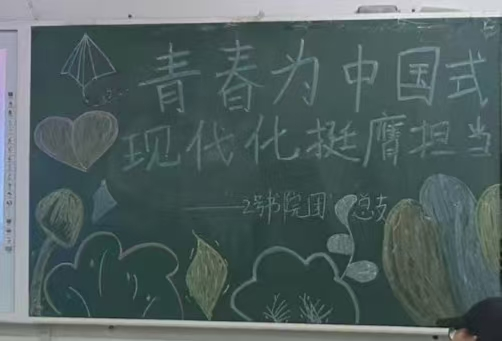 青春为中国式
现代化挺膺担当
——2号书院团总支